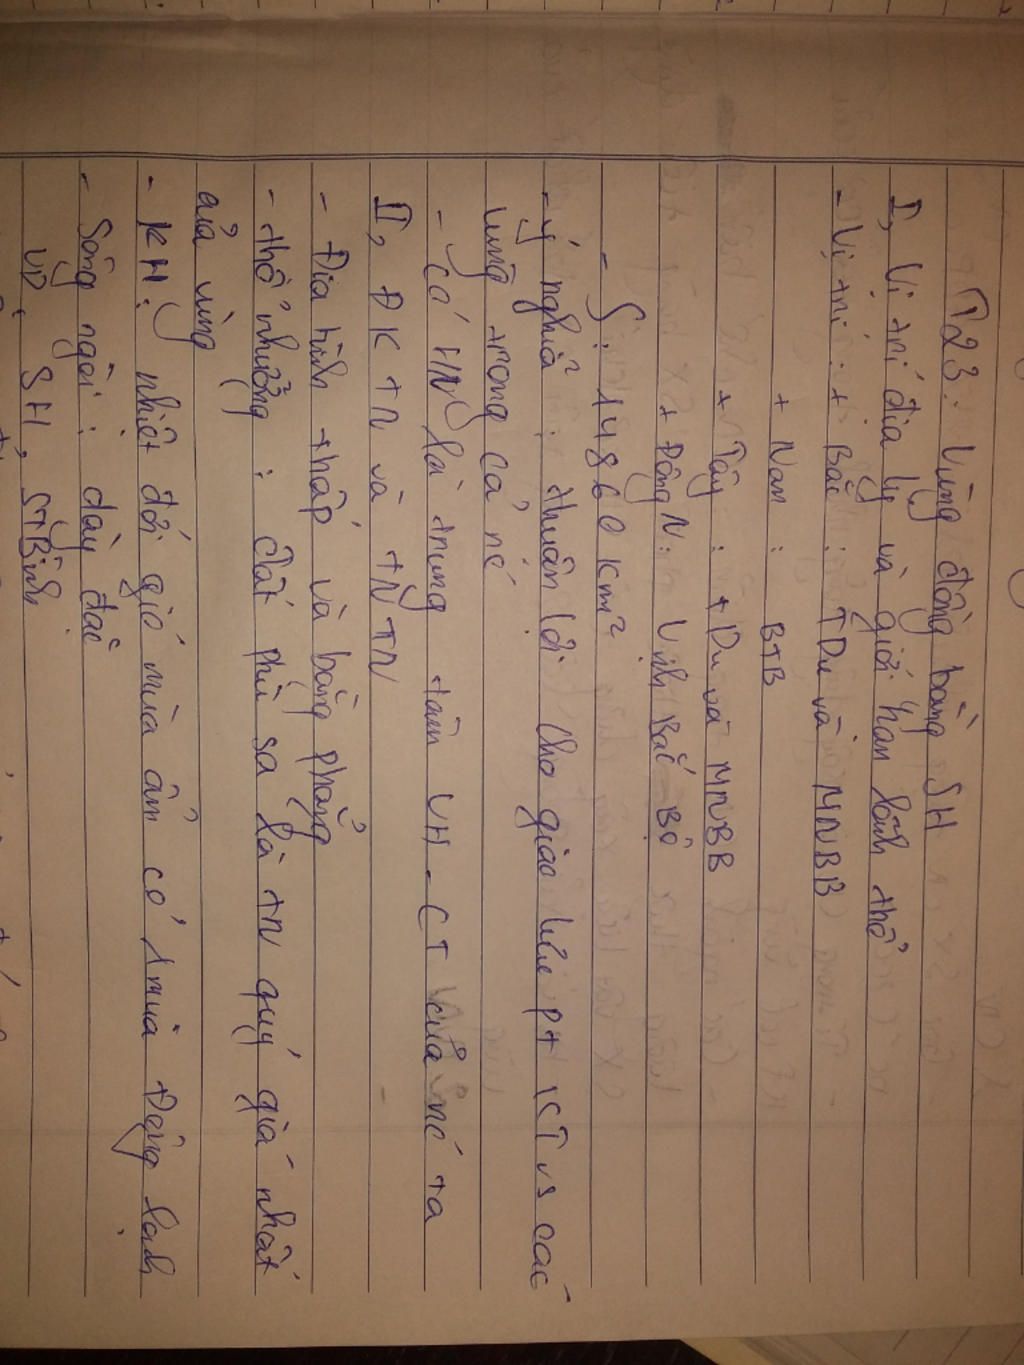 T23: Vùng đồng bằng SH
I, Vị trí địa lý và giới hạn lãnh thổ
- Vị trí: + Bắc: TDu và MNBB
+ Nam: BTB
+ Tây: TDu và MNBB
+ Đông N: Vịnh Bắc Bộ
- S: 14860 km²
- ý nghĩa: thuận lợi cho giao lưu pt KT vs các
vùng trong cả nc
- Có HN là trung tâm VH - CT của nc ta
II, ĐK TN và TNTN
- Địa hình thấp và bằng phẳng
- thổ nhưỡng: đất phù sa là tn quý giá nhất
của vùng
- KH: nhiệt đới gió mùa ẩm có 1 mùa Đông lạnh
- Sông ngòi: dày đặc
VD, SH, STBình